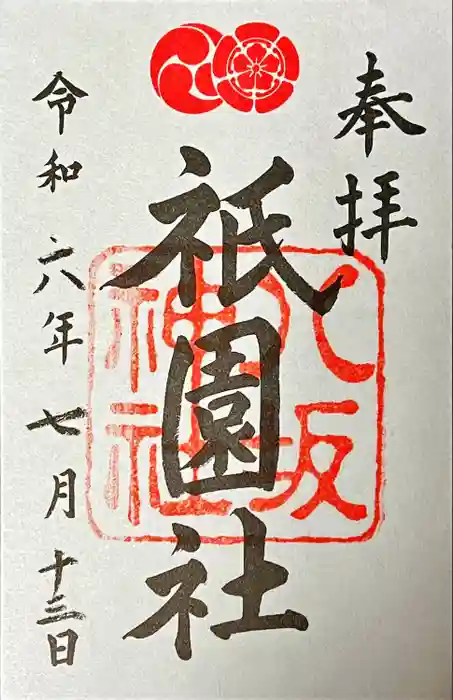 奉拝
祇園社
八坂
神社
令和六年七月十三日